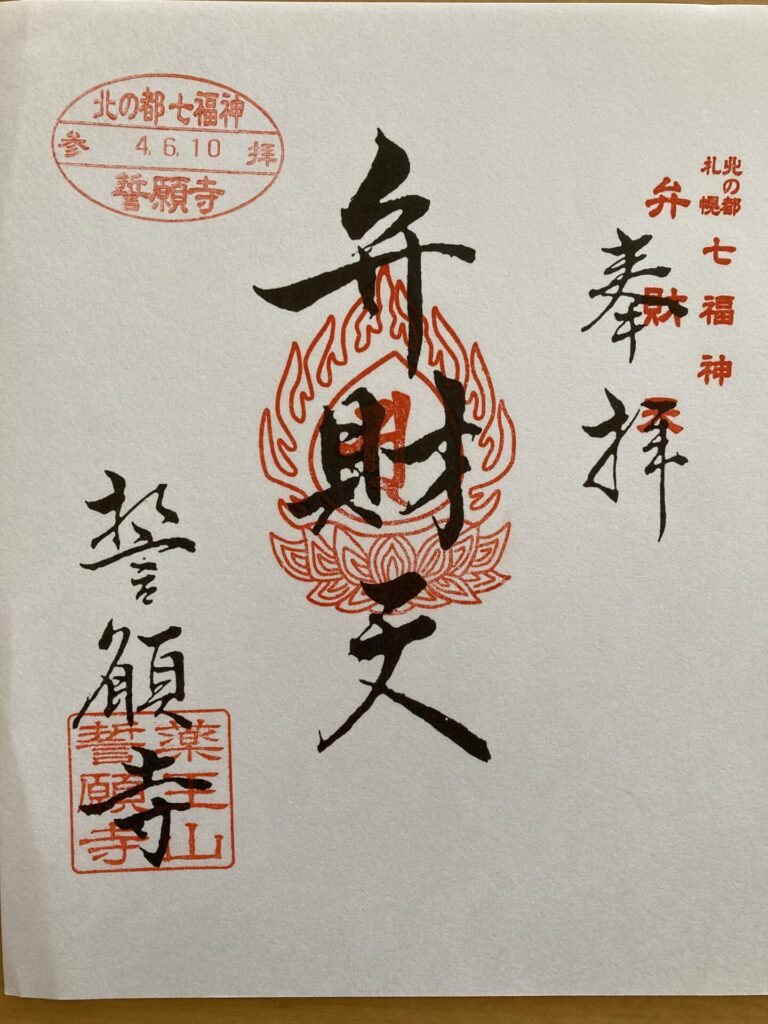 北の都
札幌
七福神
弁財天
奉拝
弁財天
誓願寺
薬王山
誓願寺
北の都七福神
参 4.6.10 拝
誓願寺